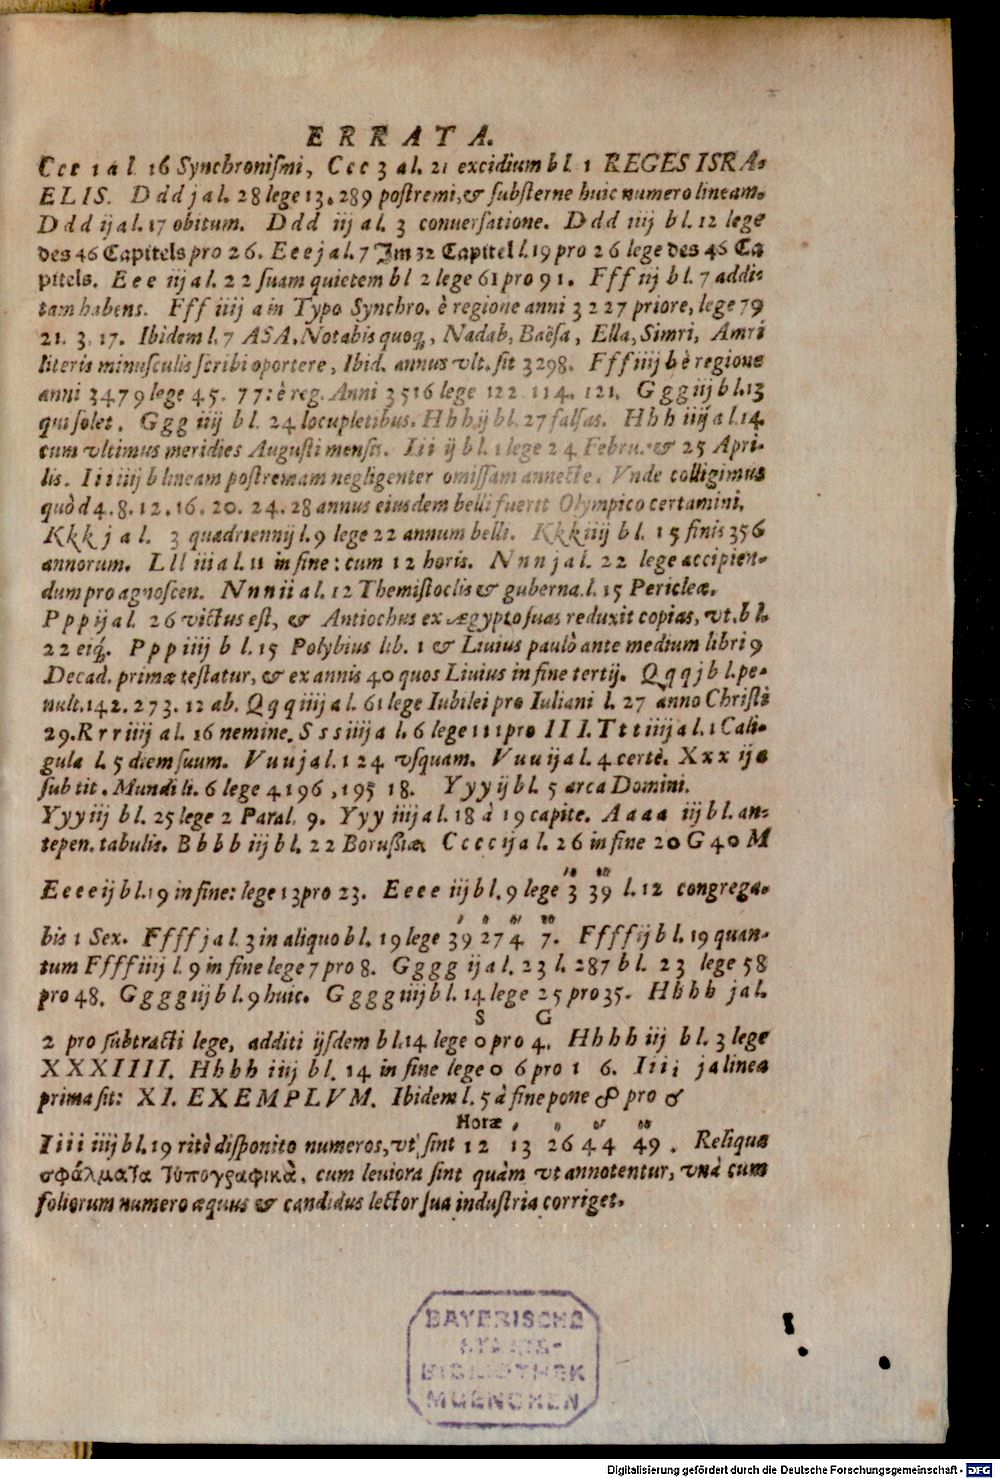 ERRATA.
Ccc 1 a l. 16 Synchroniſmi, Ccc 3 a l. 21 excidium b l. 1 REGES ISRA-
ELIS. Ddd j a l. 28 lege 13. 289 poſtremi, & ſubſterne huic numero lineam.
Ddd ij a l. 17 obitum. Ddd iij a l. 3 conuerſatione. Ddd iiij b l. 12 lege
des 46 Capitels pro 26. Eee j a l. 7 Im 32 Capitel l. 19 pro 26 lege des 46 Ca
pitels. Eee iij a l. 22 ſuam quietem b l 2 lege 61 pro 91. Fff iij b l. 7 addi-
tam habens. Fff iiij a in Typo Synchro. è regione anni 3227 priore, lege 79
21. 3. 17. Ibidem l. 7 ASA. Notabis quoq, Nadab, Baëſa, Ella, Simri, Amri
literis minuſculis ſcribi oportere, Ibid. annus vlt. ſit 3298. Fff iiij b è regione
anni 3479 lege 45. 77: è reg. Anni 3516 lege 122. 114. 121. Ggg iij b l. 13
qui ſolet. Ggg iiij b l. 24 locupletibus. Hhh ij b l. 27 falſas. Hhh iiij a l. 14.
cum vltimus meridies Auguſti menſis. Iii ij b l. 1 lege 24 Febru. & 25 Apri-
lis. Iii iiij b lineam poſtremam negligenter omiſſam annecte. Vnde colligimus
quòd 4. 8. 12. 16. 20. 24. 28 annus eiusdem belli fuerit Olympico certamini.
Kkk j a l. 3 quadriennij l. 9 lege 22 annum belli. Kkk iiij b l. 15 finis 356
annorum. Lll iii a l. 11 in fine: cum 12 horis. Nnn j a l. 22 lege accipien-
dum pro agnoſcen. Nnn ii a l. 12 Themiſtoclis & guberna. l. 15 Pericleæ.
Ppp ij a l. 26 victus eſt, & Antiochus ex Ægypto ſuas reduxit copias, vt. b l.
22 eiq́. Ppp iiij b l. 15 Polybius lib. 1 & Liuius paulò ante medium libri 9
Decad. primæ teſtatur, & ex annis 40 quos Liuius in fine tertij. Qqq j b l. pe-
nult. 142. 273. 12 ab. Qqq iiij a l. 61 lege Iubilei pro Iuliani l. 27 anno Chriſti
29. Rrr iiij a l. 16 nemine. Sss iiij a l. 6 lege 111 pro III. Ttt iiij a l. 1 Cali-
gula l. 5 diem ſuum. Vuu j a l. 1 24 vſquam. Vuu ij a l. 4 certè. Xxx ij a
ſub tit. Mundi li. 6 lege 4196, 195 18. Yyy ij b l. 5 arca Domini.
Yyy iij b l. 25 lege 2 Paral. 9. Yyy iiij a l. 18 à 19 capite. Aaaa iij b l. an-
tepen. tabulis. Bbbb iij b l. 22 Boruſsiæ Cccc ij a l. 26 in fine 20 G 40 M
Eeee ij b l. 19 in fine: lege 13 pro 23. Eeee iij b l. 9 lege 3 39 l. 12 congrega-
bis 1 Sex. Ffff j a l. 3 in aliquo b l. 19 lege 39 27 4 7. Ffff ij b l. 19 quan-
tum Ffff iiij l. 9 in fine lege 7 pro 8. Gggg ij a l. 23 l. 287 b l. 23 lege 58
pro 48. Gggg iij b l. 9 huic. Gggg iiij b l. 14 lege 25 pro 35. Hhhh j a l.
S G
2 pro ſubtracti lege, additi ijſdem b l. 14 lege 0 pro 4. Hhhh iij b l. 3 lege
XXXIIII. Hhhh iiij b l. 14 in fine lege 0 6 pro 1 6. Iiii j a linea
prima ſit: XI. EXEMPLVM. Ibidem l. 5 à fine pone ☍ pro ♂
Horæ
Iiii iiij b l. 19 ritè diſponito numeros, vt ſint 12 13 26 44 49. Reliqua
σφάλμαῖα τυπογραφικὰ, cum leuiora ſint quàm vt annotentur, vnà cum
foliorum numero æquus & candidus lector ſua induſtria corriget.
BAYERISCHE
STAATS-
BIBLIOTHEK
MUENCHEN
Digitalisierung gefördert durch die Deutsche Forschungsgemeinschaft - DFG